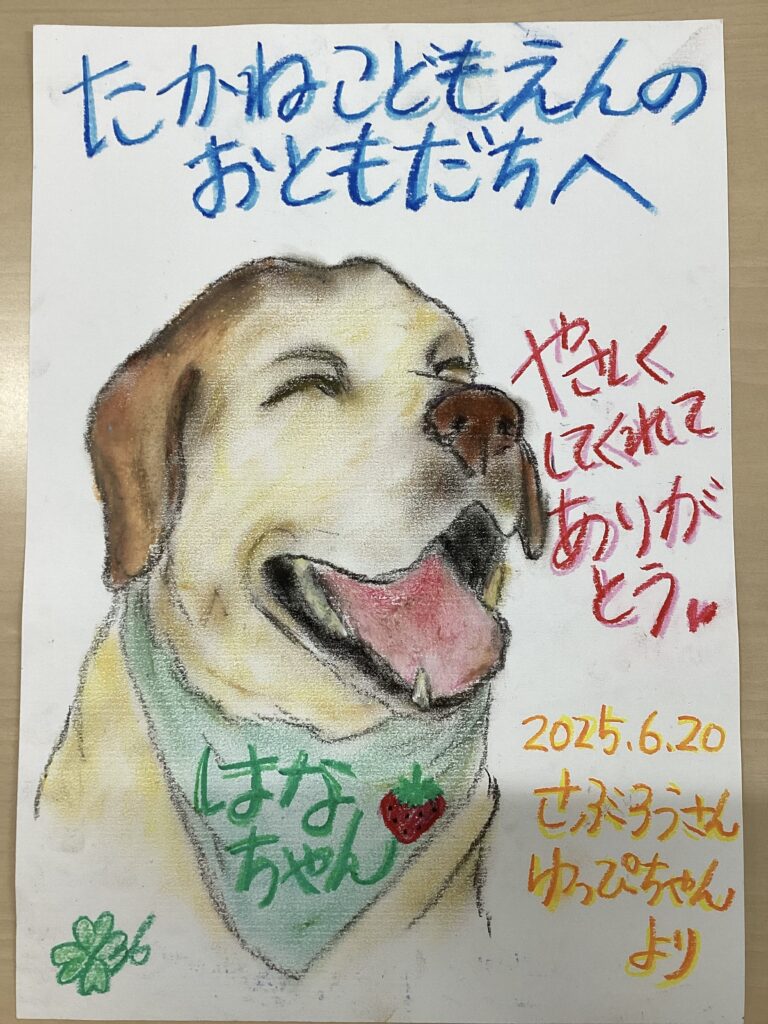 たかねこどもえんの
おともだちへ
やさしく
してくれて
ありが
とう
はな
ちゃん
2025.6.20
さぶろうさん
ゆっぴちゃん
より
36